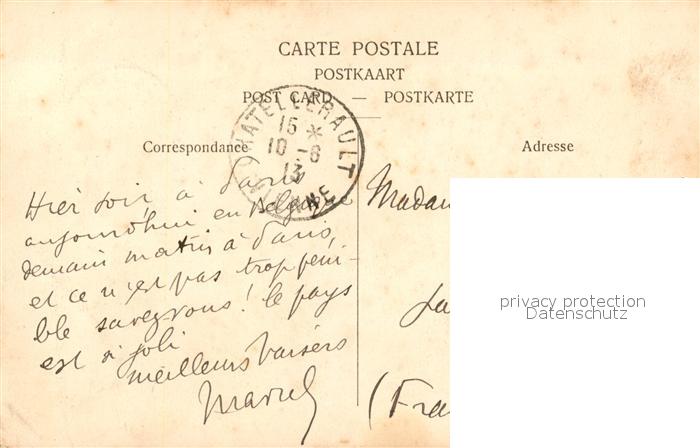 CARTE POSTALE
POSTKAART
POST CARD — POSTKARTE
Correspondance
Adresse
CHATELLERAULT
15 *
10-8
13
VIENNE
Hier soir à Paris
aujourd'hui en Belgique
demain matin à Paris,
et ce n'est pas trop peni-
ble savez vous! le pays
est si joli
meilleurs baisers
Marcel
Madam
La
(Fra
privacy protection
Datenschutz